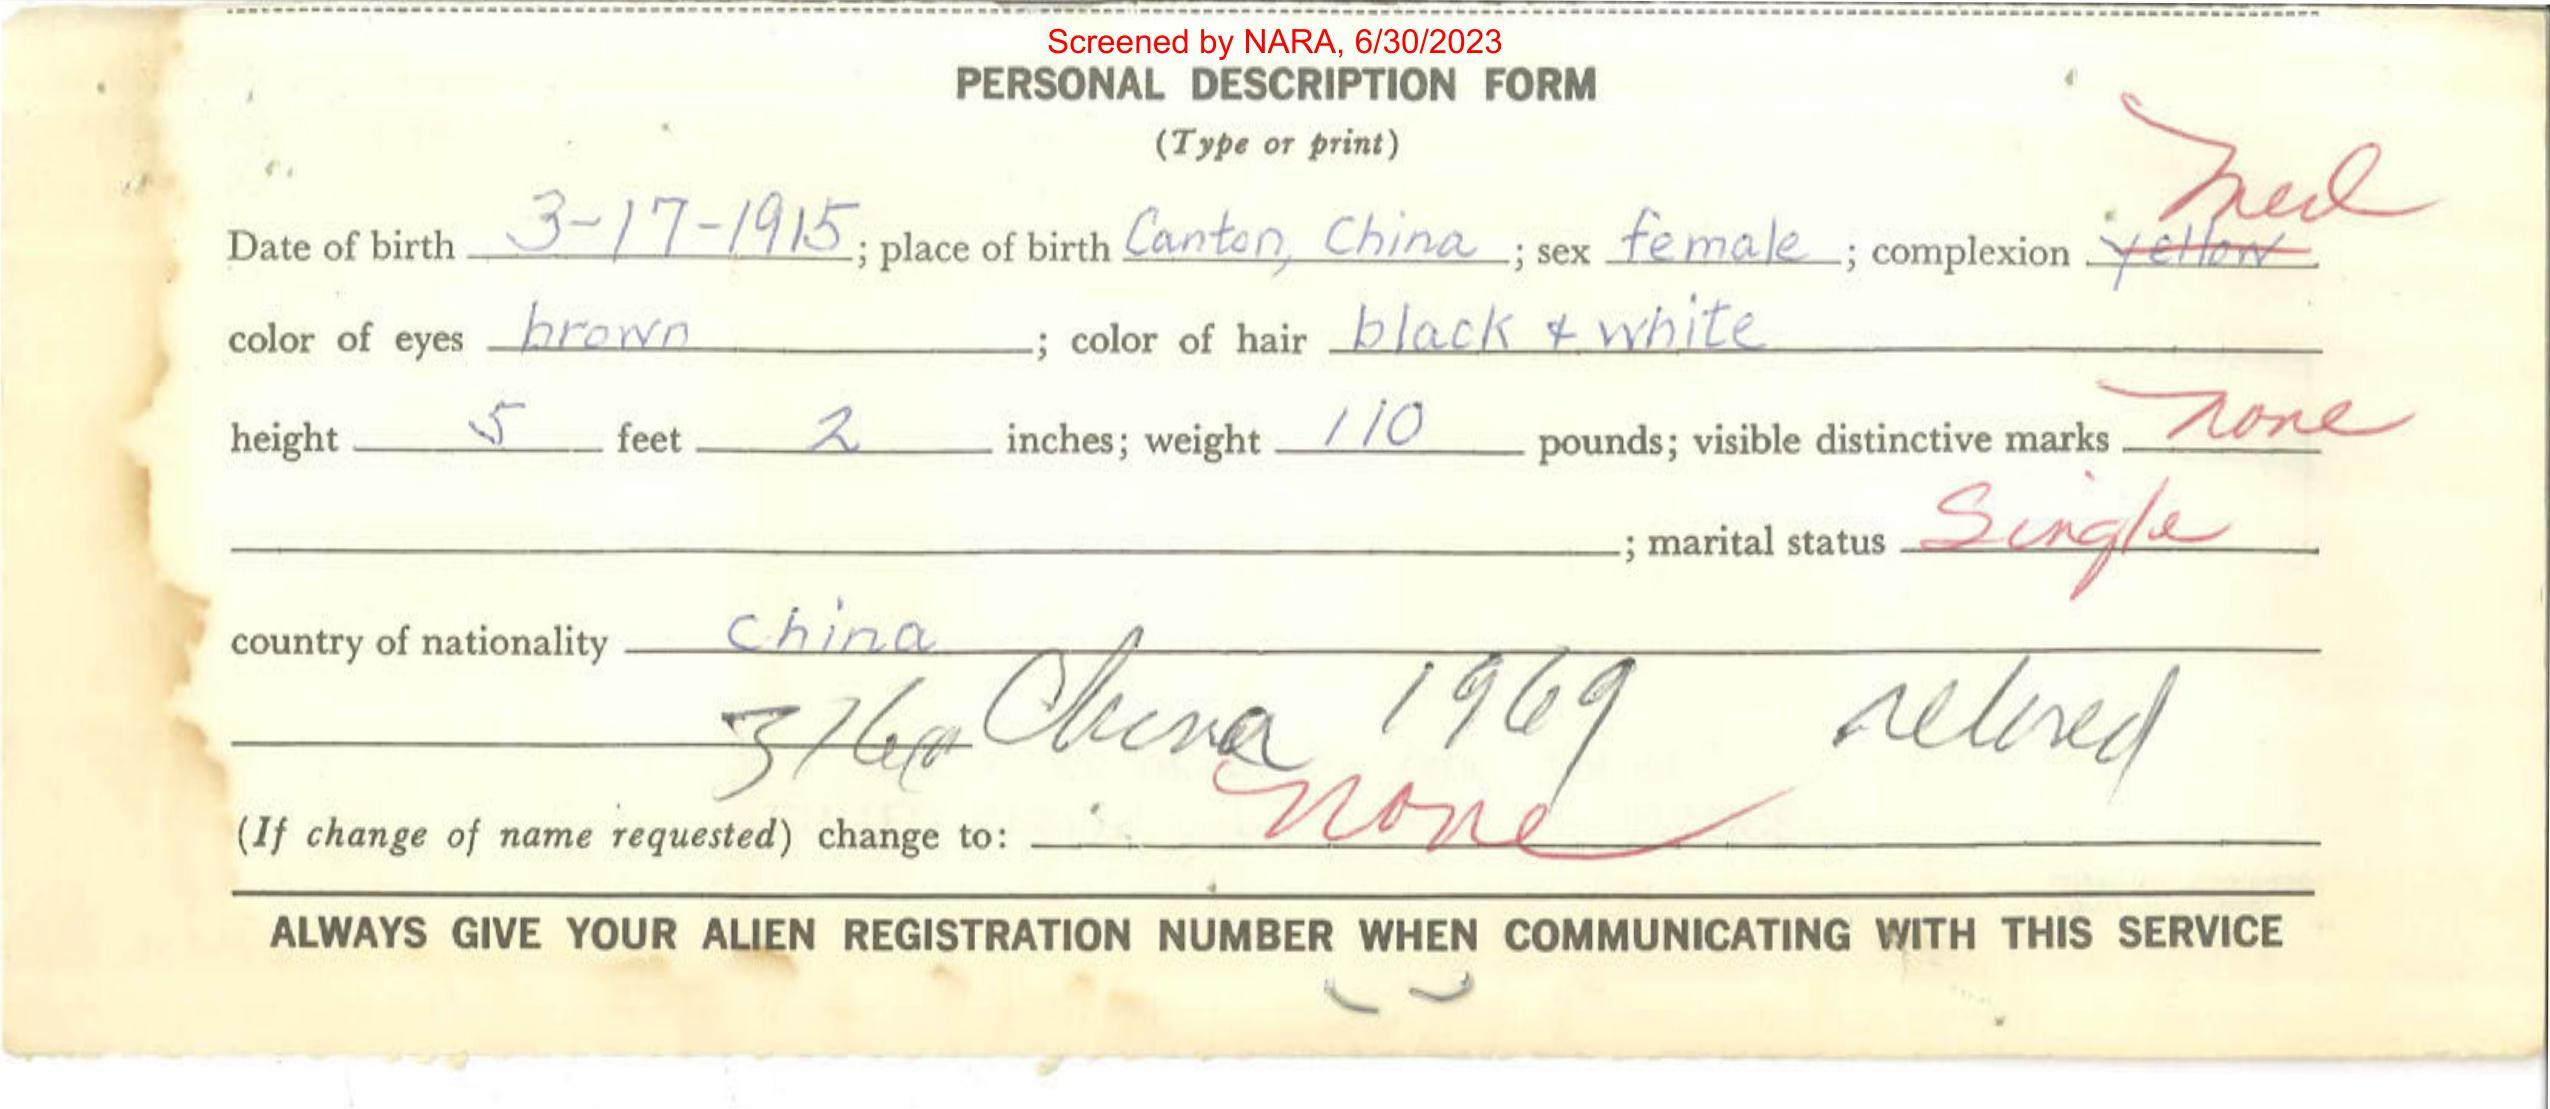 Screened by NARA, 6/30/2023
PERSONAL DESCRIPTION FORM
(Type or print)
Med
Date of birth 3-17-1915; place of birth Canton, China; sex female; complexion yellow
color of eyes brown; color of hair black & white
height 5 feet 2 inches; weight 110 pounds; visible distinctive marks none
; marital status Single
country of nationality China
China 1969 retired
(If change of name requested) change to: none
ALWAYS GIVE YOUR ALIEN REGISTRATION NUMBER WHEN COMMUNICATING WITH THIS SERVICE